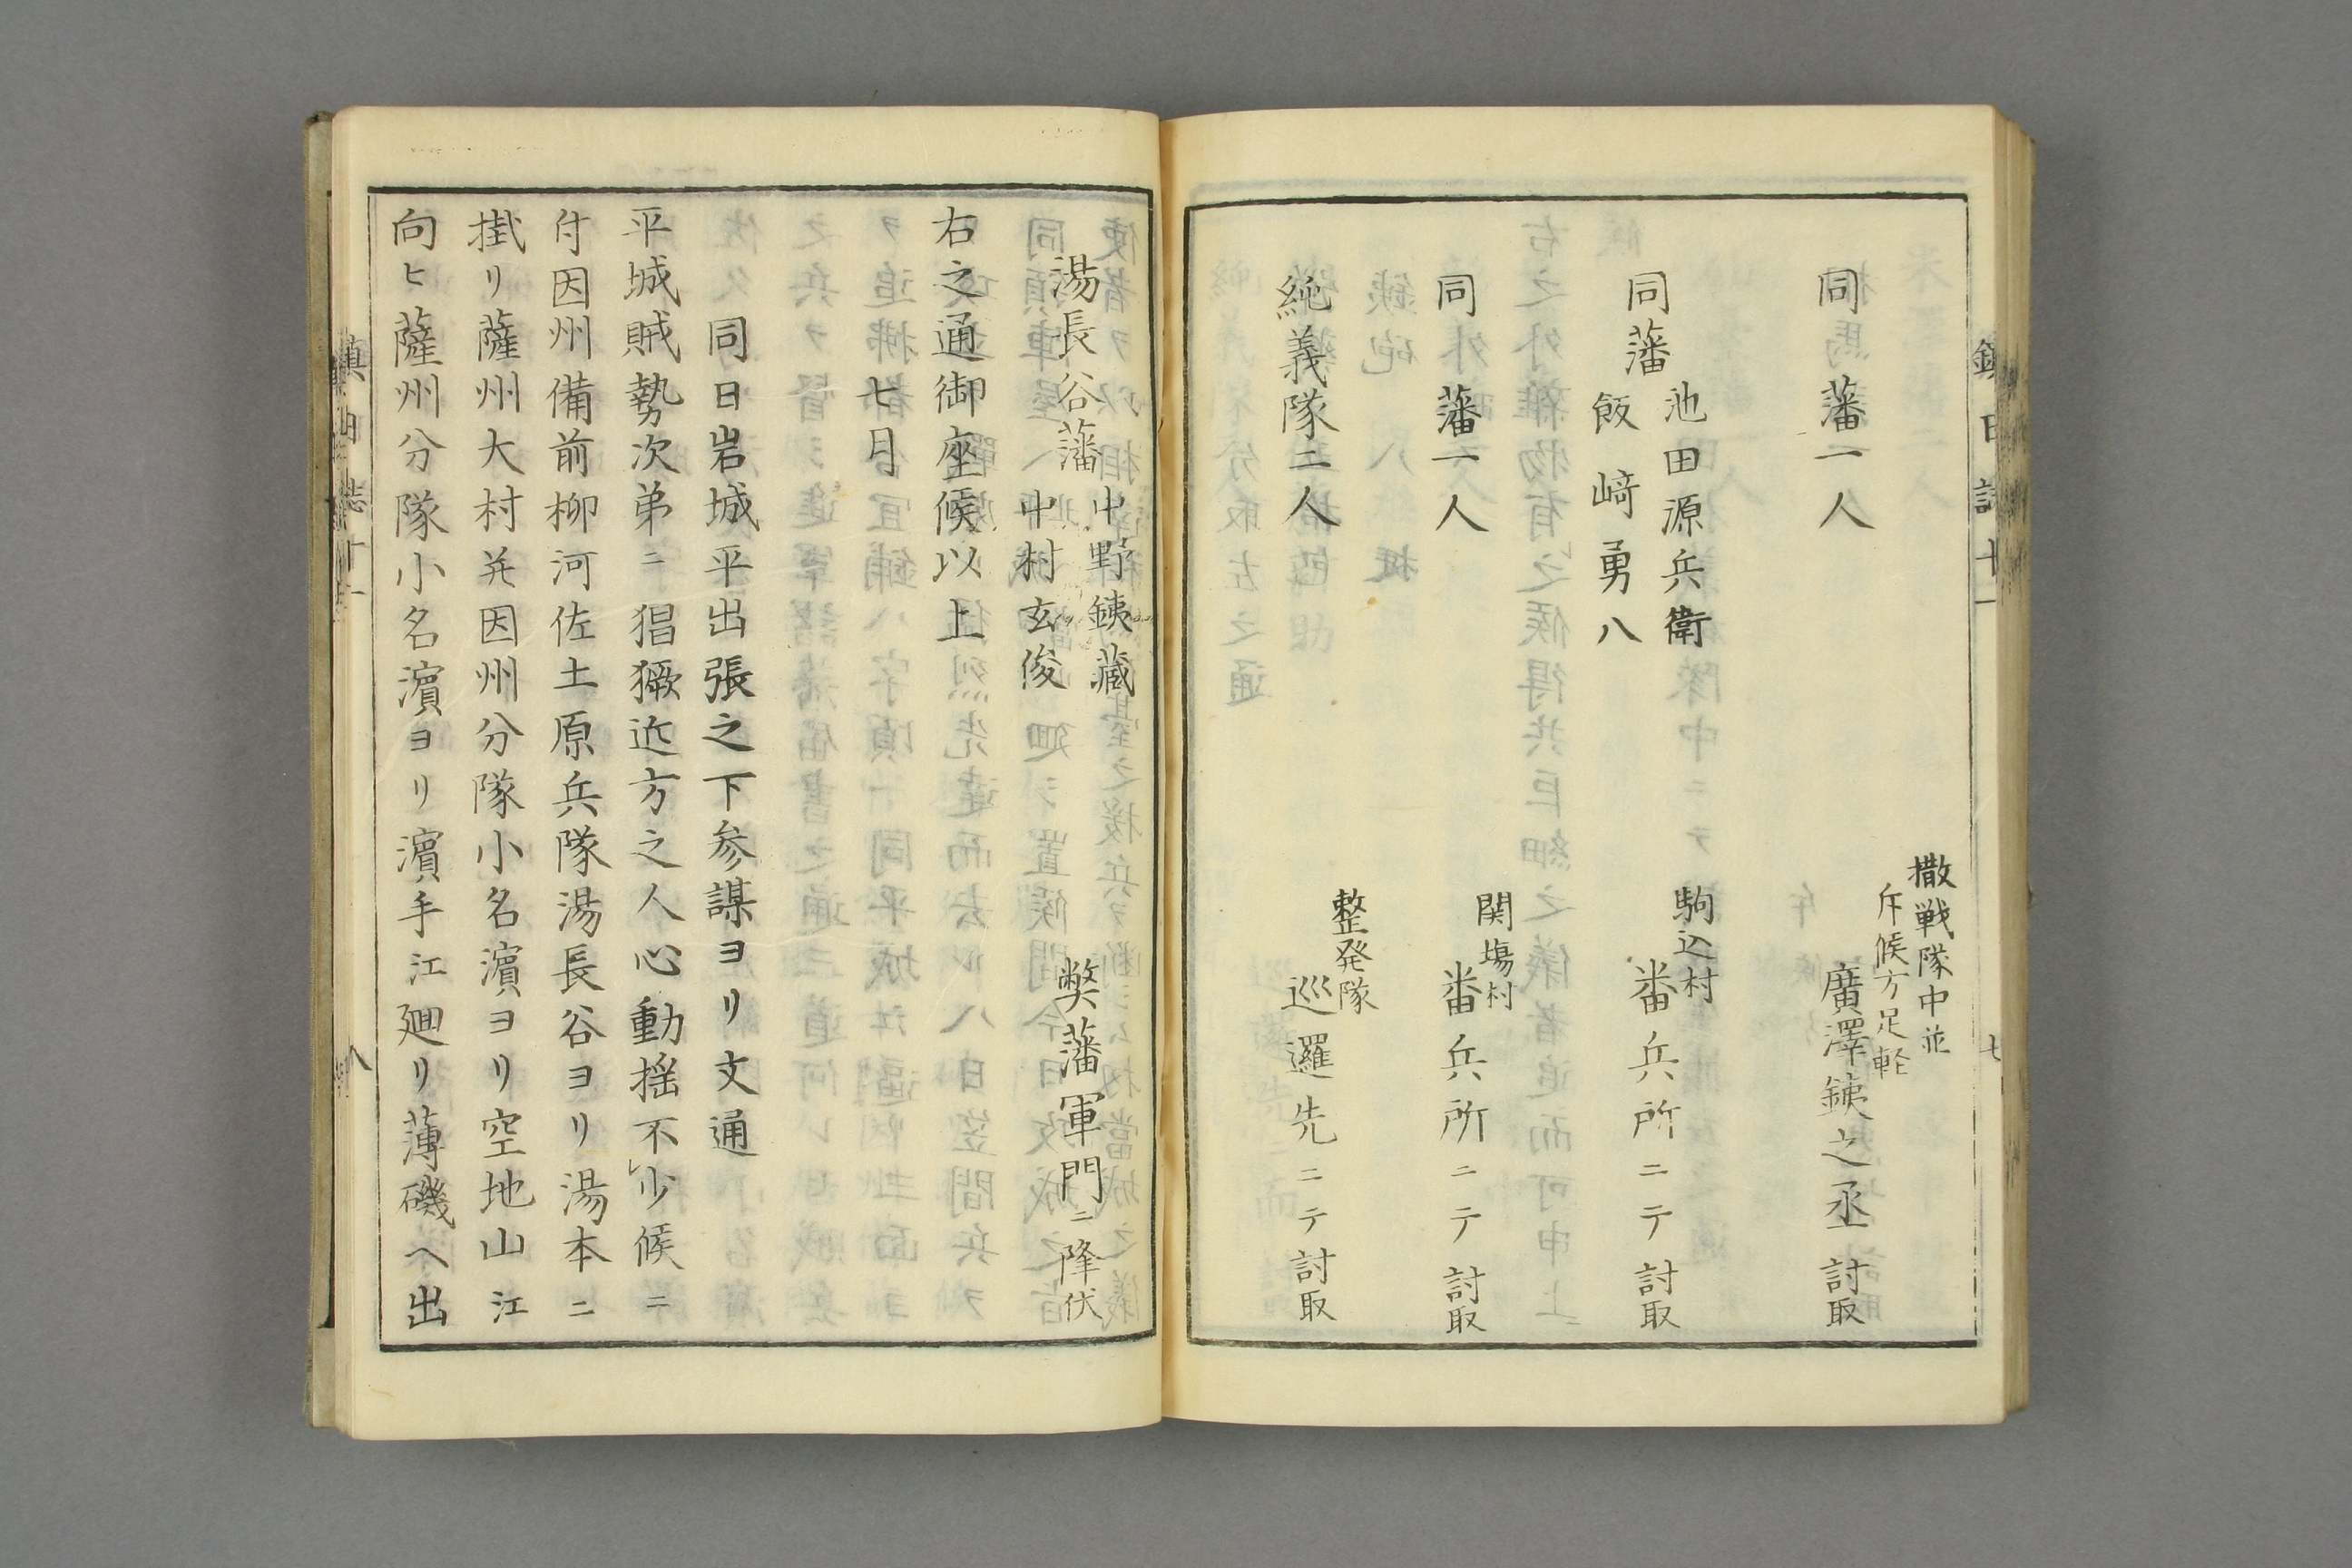 同藩一人
撒戦隊中並
斥候方足軽
廣澤銕之丞討取
同藩
池田源兵衛
飯﨑勇八
駒込村
番兵所ニテ討取
同藩一人
関塲村
番兵所ニテ討取
純義隊二人
整発隊
巡邏先ニテ討取
湯長谷藩
中野銕藏
中村玄俊
弊藩軍門ニ降伏
右之通御座候以上
七月
同日岩城平出張之下参謀ヨリ文通
平城賊勢次第ニ猖獗近方之人心動揺不少候ニ
付因州備前柳河佐土原兵隊湯長谷ヨリ湯本ニ
掛リ薩州大村并因州分隊小名濵ヨリ空地山江
向ヒ薩州分隊小名濵ヨリ濵手江廻リ薄磯ヘ出
八